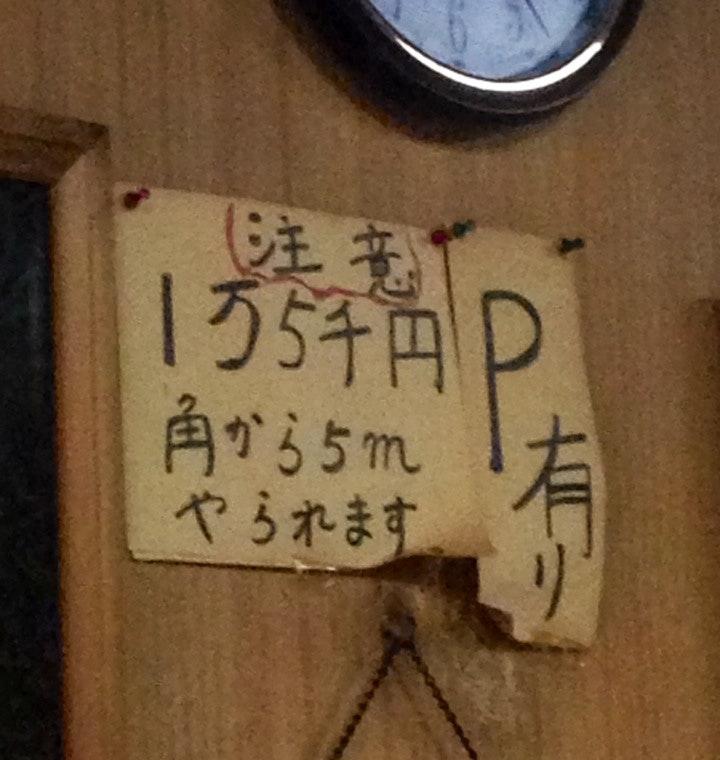 注意
1万5千円
角から5m
やられます
P有り